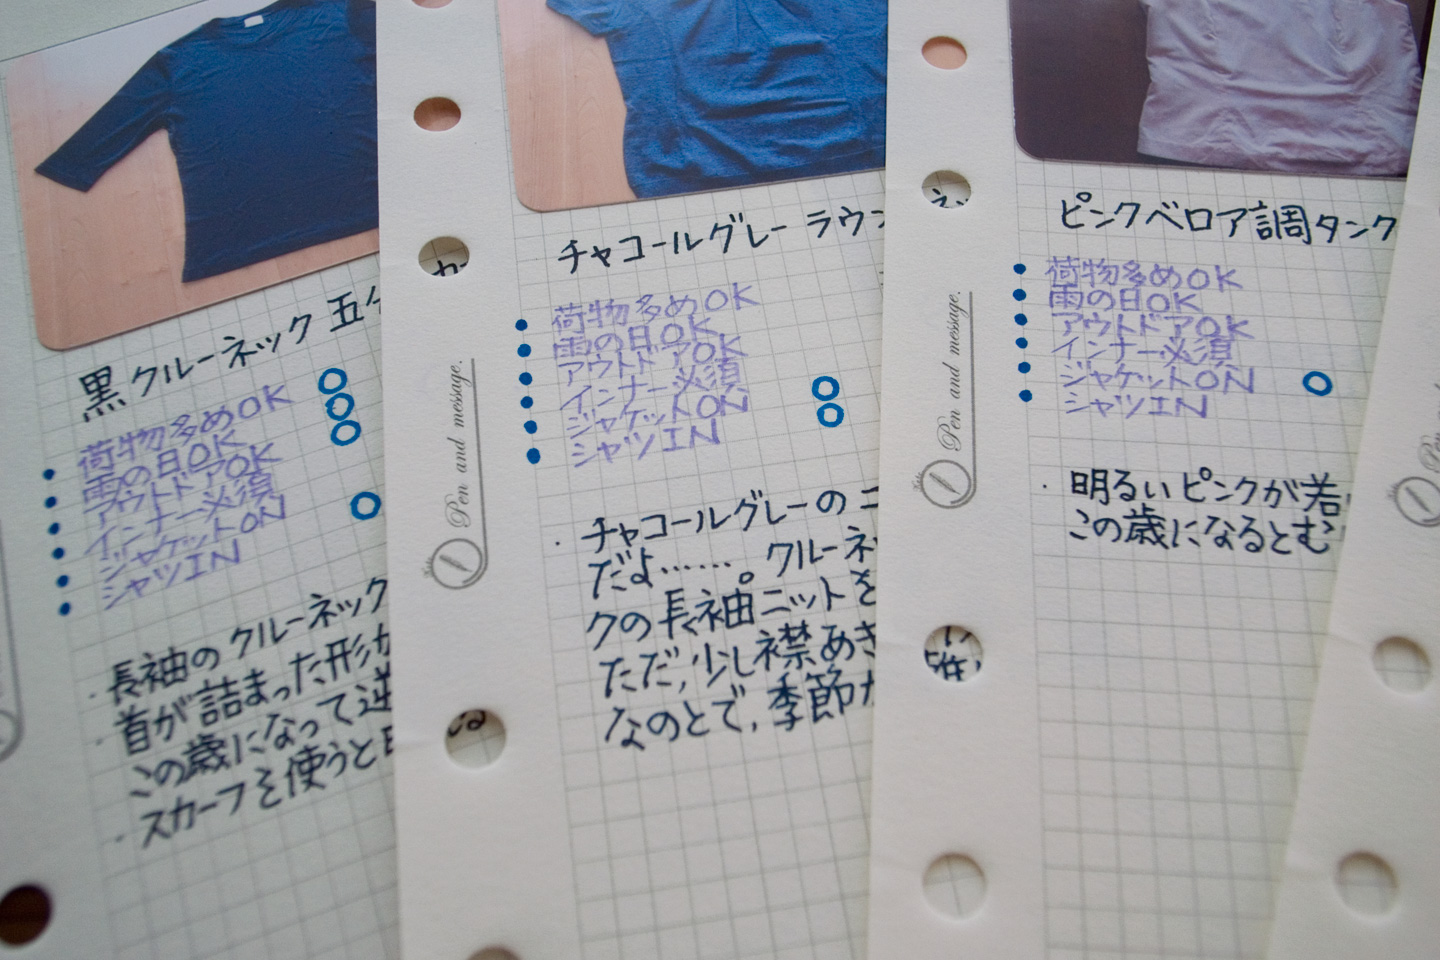 黒クルーネック 五分
荷物多めOK
雨の日OK
アウトドアOK
インナー必須
ジャケットON
シャツIN
・長袖のクルーネック
首が詰まった形が
・この歳になって逆
スカーフを使うと
Pen and message.
チャコールグレー ラウン
荷物多めOK
雨の日OK
アウトドアOK
インナー必須
ジャケットON
シャツIN
・チャコールグレーのニ
だよ……。クルーネッ
クの長袖ニットを
ただ、少し襟あき
なのとで、季節が
Pen and message.
ピンクベロア調タンク
荷物多めOK
雨の日OK
アウトドアOK
インナー必須
ジャケットON
シャツIN
・明るいピンクが若
この歳になるとむ